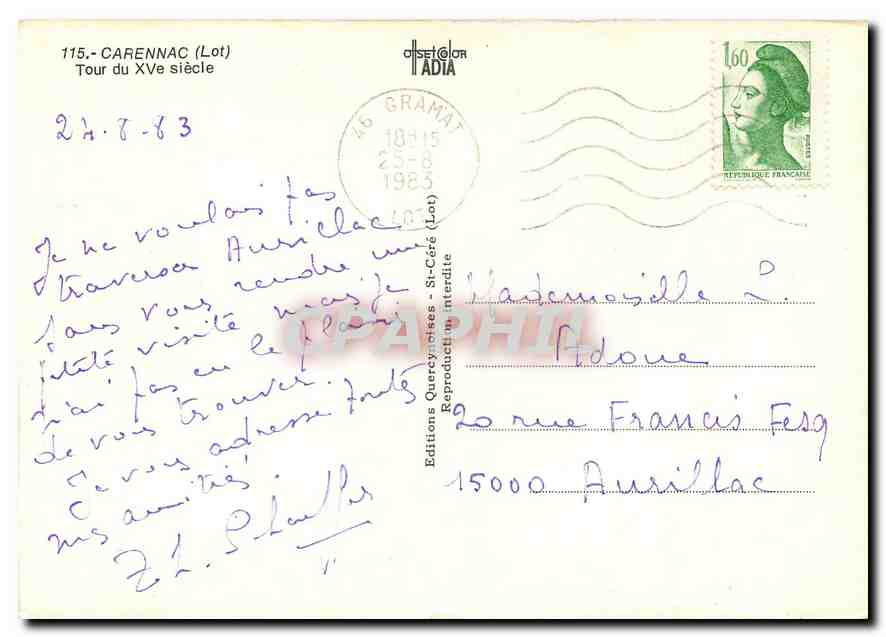 115.- CARENNAC (Lot)
Tour du XVe siècle
OffsetColOR
ADIA
24.8-83
46 GRAMAT
18H15
25-8
1983
LOT
1,60
POSTES
RÉPUBLIQUE FRANÇAISE
Je ne voulais pas
traverser Aurillac
sans vous rendre une
petite visite mais je
n'ai pas eu le plaisir
de vous trouver.
Je vous adresse toutes
mes amitiés.
Editions Quercynoises - St-Céré (Lot)
Reproduction interdite
Mademoiselle L.
Adoue
20 rue Francis Fesq
15000 Aurillac
CPAPHIL